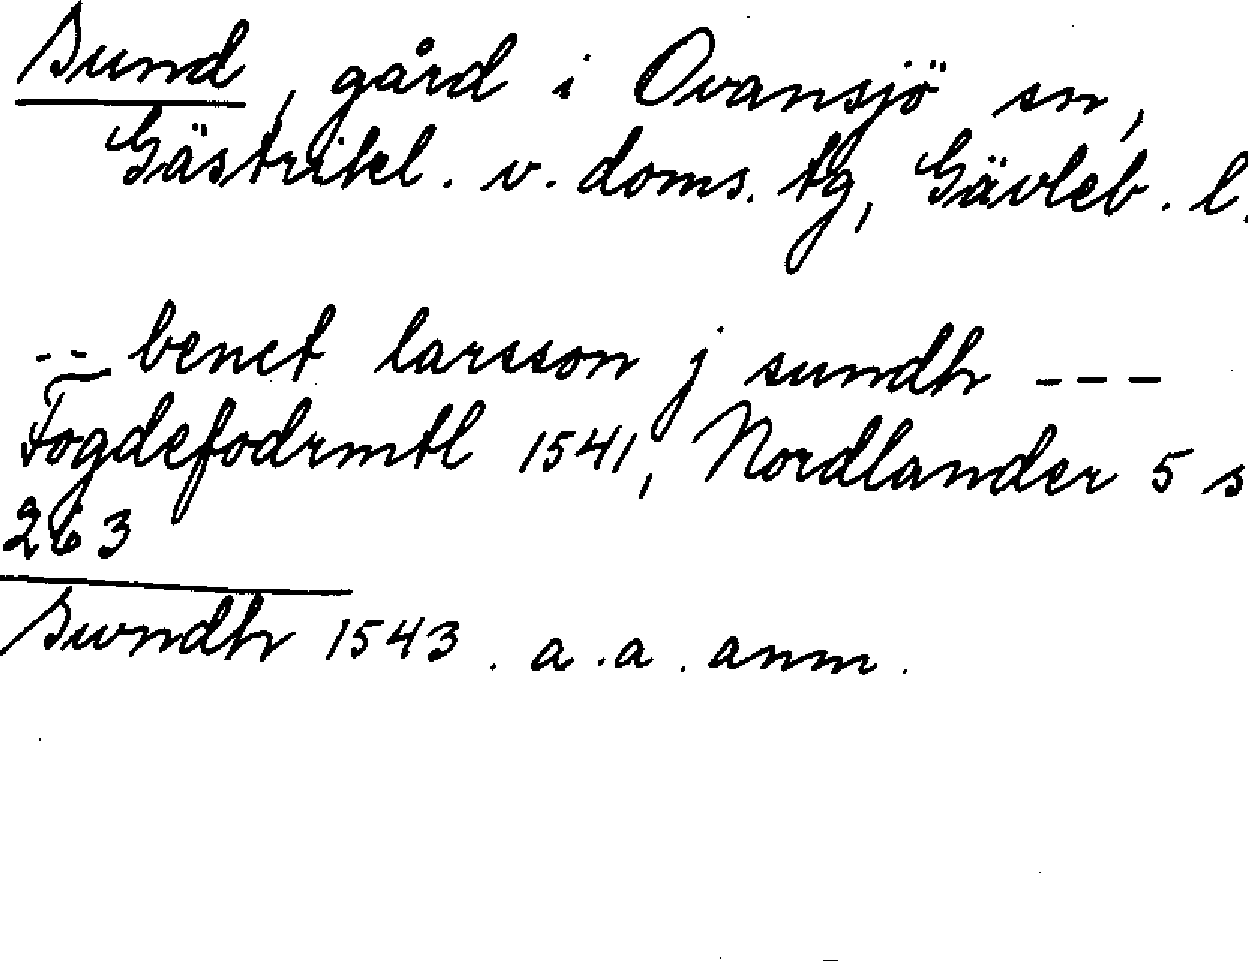 Sund, gård i Ovansjö sn,
Gästrikl. v. doms. tg, Gävleb. l.
-- benct larsson j sundh ---
Fogdefodrmtl 1541, Nordlander 5 s
263
Swndh 1543. a.a. anm.